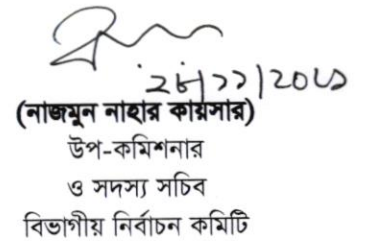 (নাজমুন নাহার কায়সার)
উপ-কমিশনার
ও সদস্য সচিব
বিভাগীয় নির্বাচন কমিটি